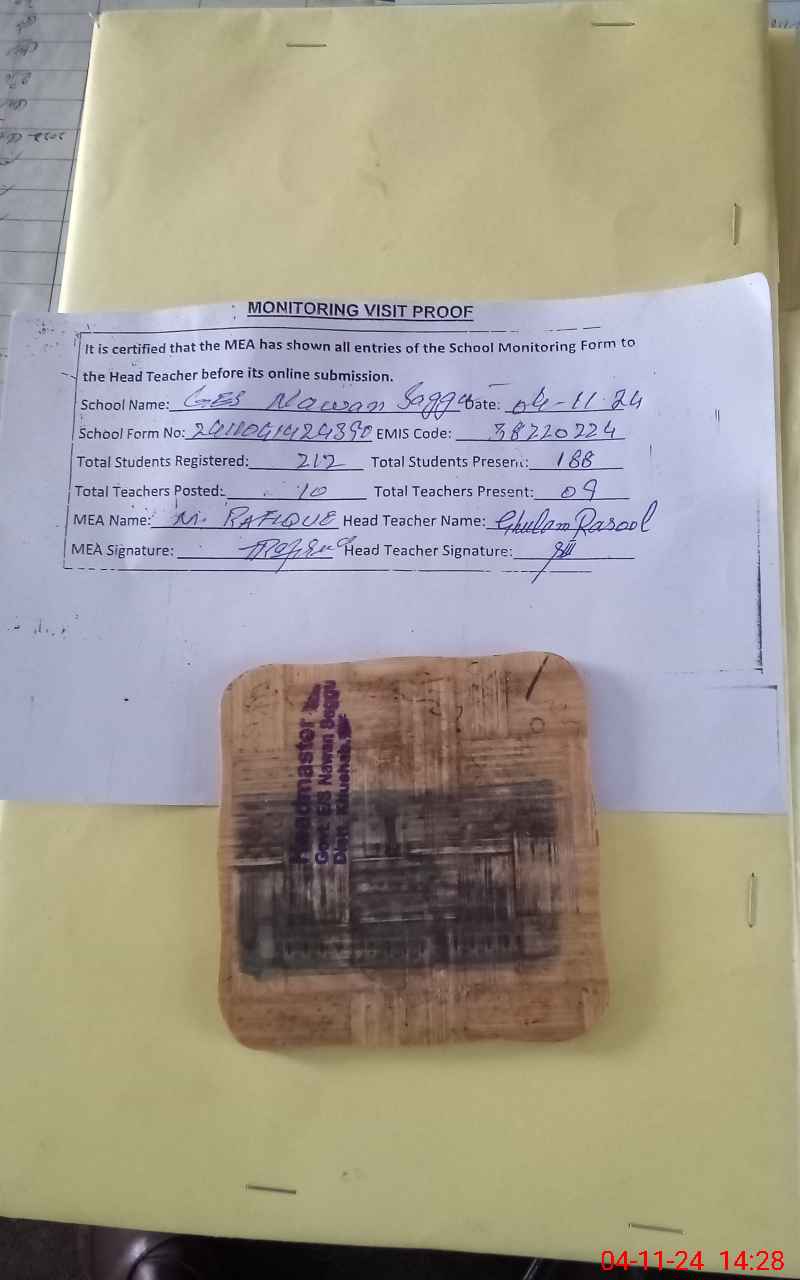 MONITORING VISIT PROOF
It is certified that the MEA has shown all entries of the School Monitoring Form to
the Head Teacher before its online submission.
School Name: GES Nawan Saggu Date: 04-11-24
School Form No: EMIS Code: 38220224
Total Students Registered: 212 Total Students Present: 188
Total Teachers Posted: 10 Total Teachers Present: 09
MEA Name: M. RAFIQUE Head Teacher Name: Ghulam Rasool
MEA Signature: Head Teacher Signature:
Headmaster
Govt. E/S Nawan Saggu
Distt. Khushab
04-11-24 14:28